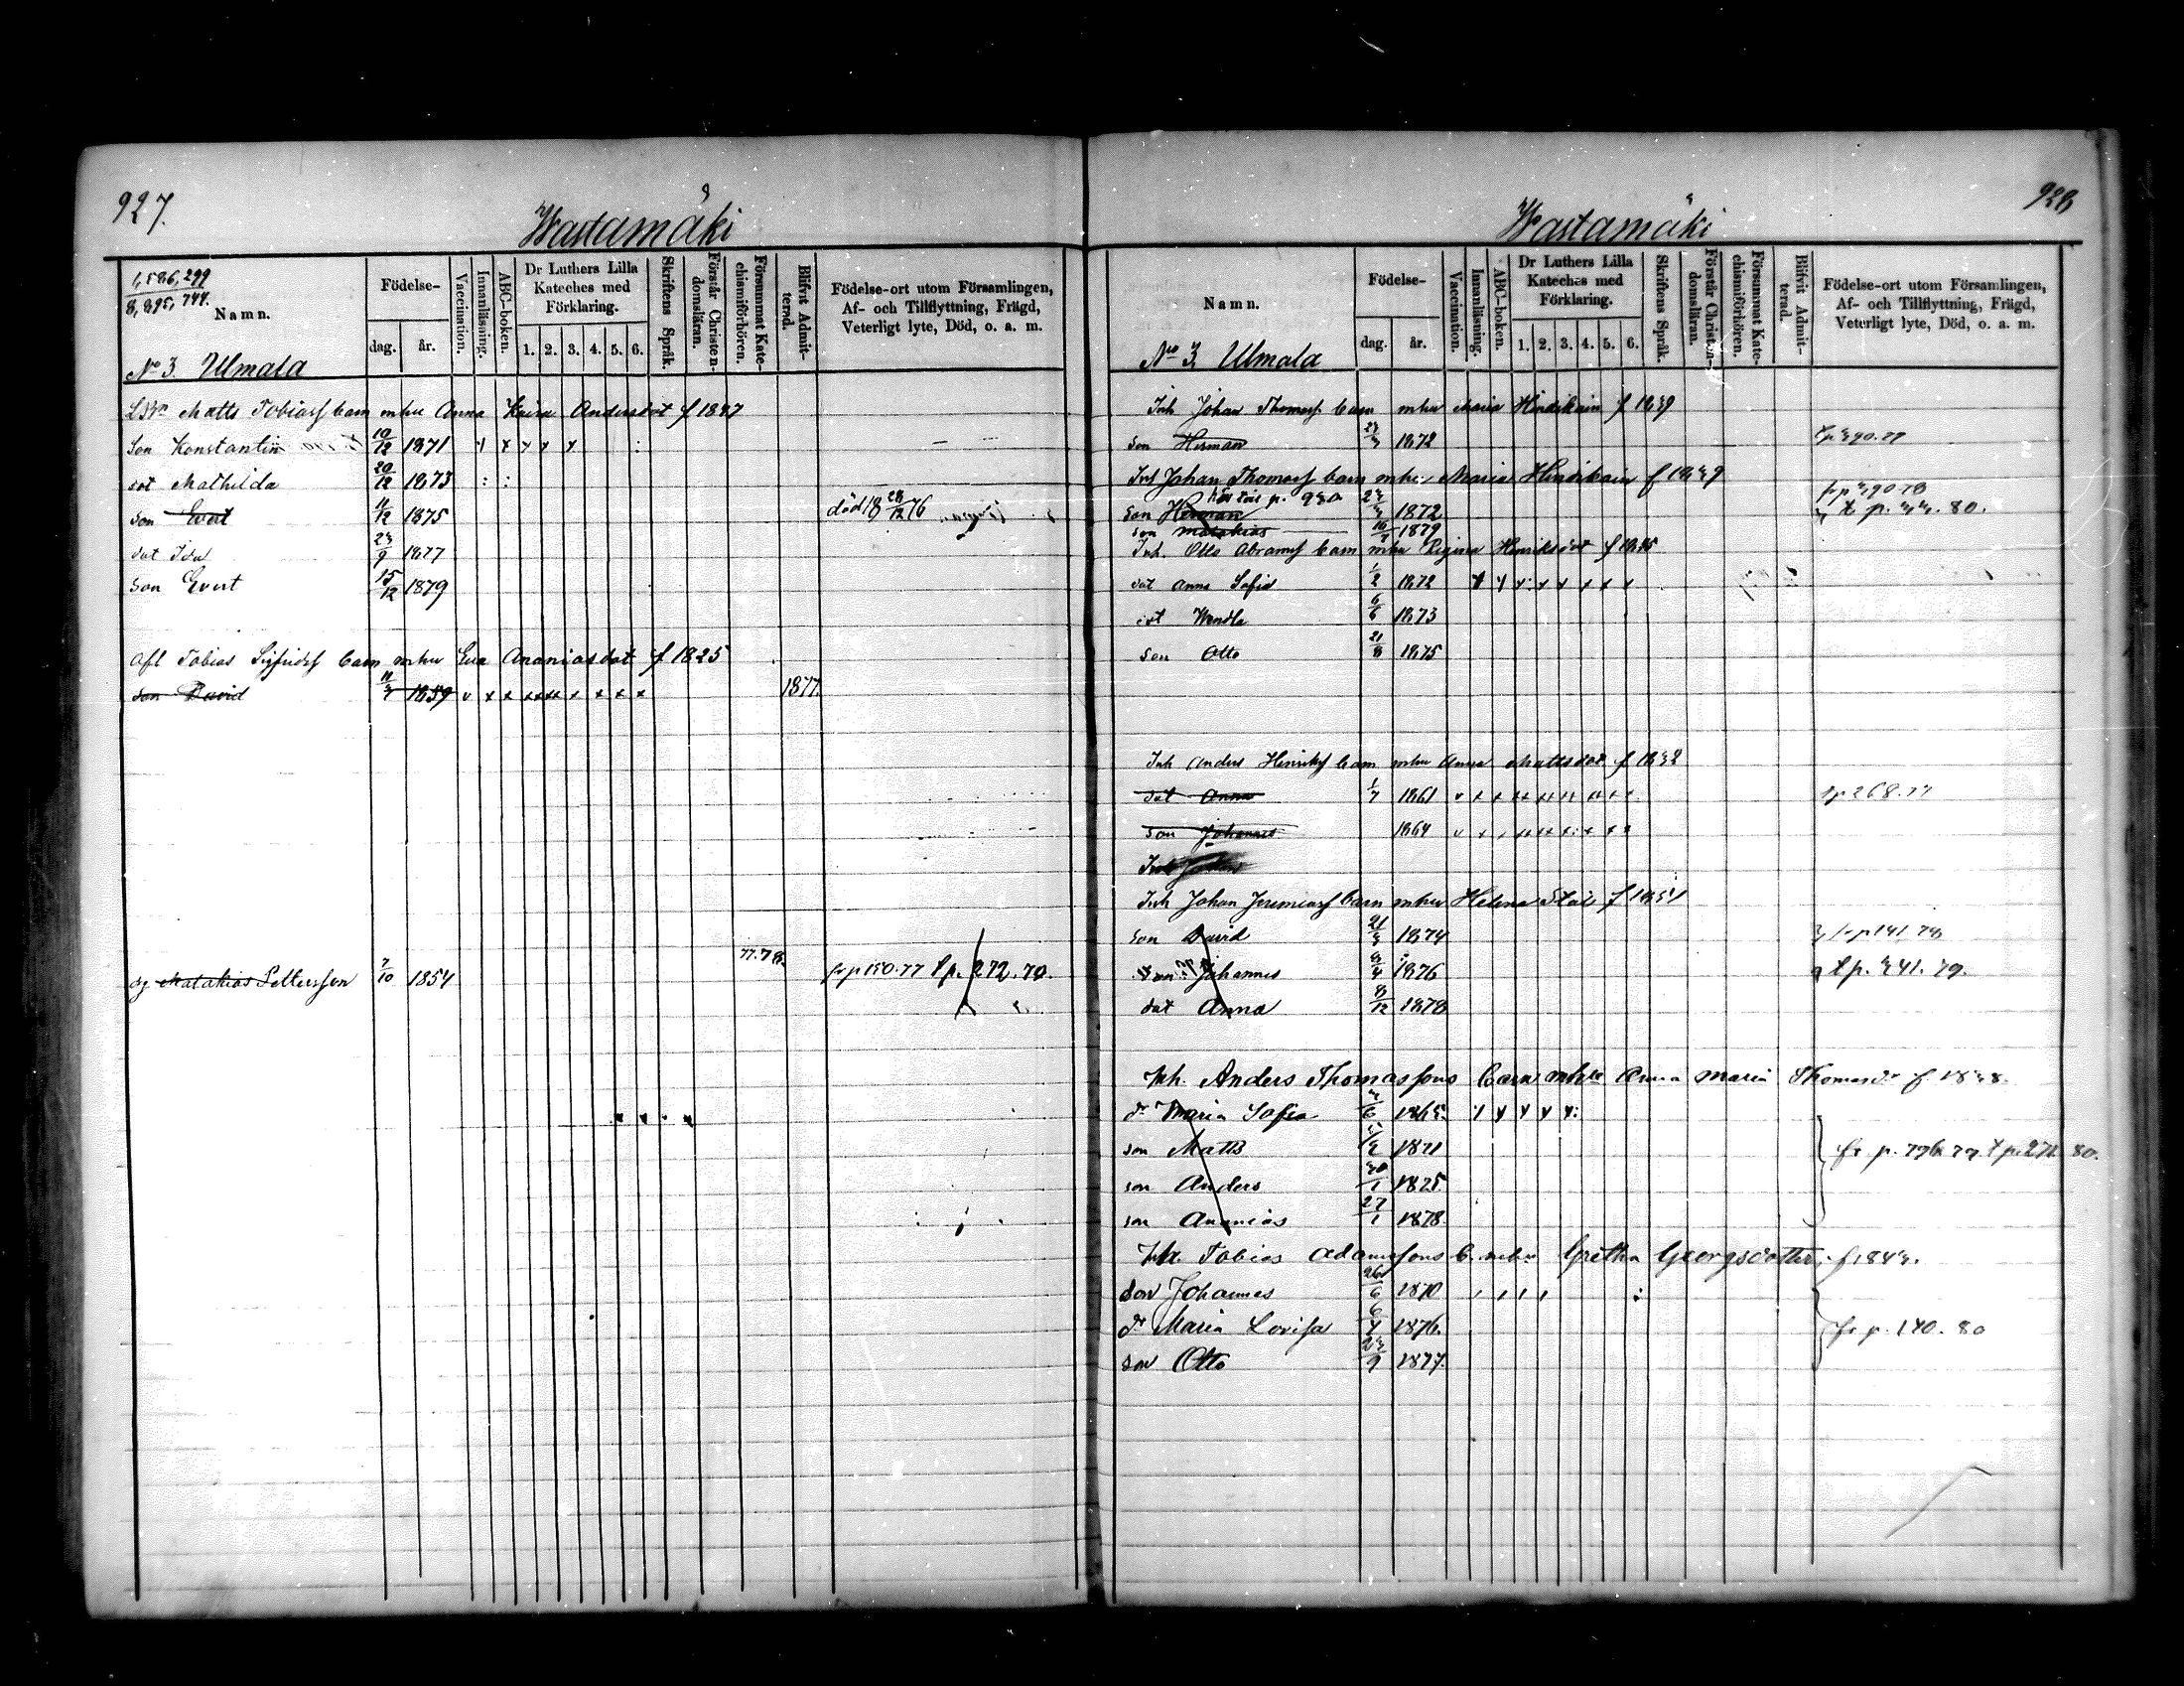 927.
Wastamäki
1,586,299
8,895,744.
Namn.
Födelse-
dag. år.
Vaccination.
Innanläsning.
ABC-boken.
Dr Luthers Lilla Kateches med Förklaring.
1. 2. 3. 4. 5. 6.
Skriftens Språk.
Förstår Christendomsläran.
Försummat Katechismiförhören.
Blifvit Admitterad.
Födelse-ort utom Församlingen, Af- och Tillflyttning, Frägd, Veterligt lyte, Död, o. a. m.
No 3. Ulmala
Matts Tobiass barn mhu Anna Kaisa Andersdot f 1847
Son Konstantin 10/12 1871
dot Mathilda 20/12 1873
son Evert 11/12 1875 död 18 28/12 76
dot Ida 23/9 1877
son Evert 15/12 1879
Afl Tobias Sigfridss barn mhu Eva Ananiasdot f 1825
son David 11/3 1859 1877.
dg Matakias Pettersson 7/10 1854 77.78. fr p 150.77 t p. 272.79.
928
Wastamäki
Namn.
Födelse-
dag. år.
Vaccination.
Innanläsning.
ABC-boken.
Dr Luthers Lilla Kateches med Förklaring.
1. 2. 3. 4. 5. 6.
Skriftens Språk.
Förstår Christendomsläran.
Försummat Katechismiförhören.
Blifvit Admitterad.
Födelse-ort utom Församlingen, Af- och Tillflyttning, Frägd, Veterligt lyte, Död, o. a. m.
No 3, Ulmala
Inh Johan Thomass barn mhu Maria Hindrikain f 1839
son Herman 23/3 1872 t p 390.77
Inh Johan Thomass barn mhu Maria Hindrikain f 1839
p. 930
son Herman 23/3 1872 fr p 390 78
son Matakias 16/7 1879 t p. 33. 80.
Inh. Otto Abramss barn mhu Regina Henriksdot f 1835
dot Anna Sofia 1/2 1872
dot Wendla 6/6 1873
son Otto 21/8 1875
Inh Anders Henrikss barn mhu Anna Mattsdot f 1832
dot Anna 1/7 1861 t p 268.77
son Johannes 1864
Inh Johan Jeremiass barn mhu Helena Ståle f 1851
son David 21/3 1874 fr p 141 78
son Johannes 8/4 1876 t p. 341. 79.
dot Anna 8/12 1878
Inh. Anders Thomassons barn mhu Anna Maria Thomasdr f. 1838.
dr Maria Sofia 3/6 1865.
son Matts 1871 fr p. 796 77. t p. 271 80.
son Anders 30/1 1875
son Ananias 27/1 1878.
Inh. Tobias Adamssons b. mhu Gretha Georgsdotter f 1843.
son Johannes 26/6 1870
dr Maria Lovisa 6/4 1876. fr p. 140. 80
son Otto 23/9 1877.